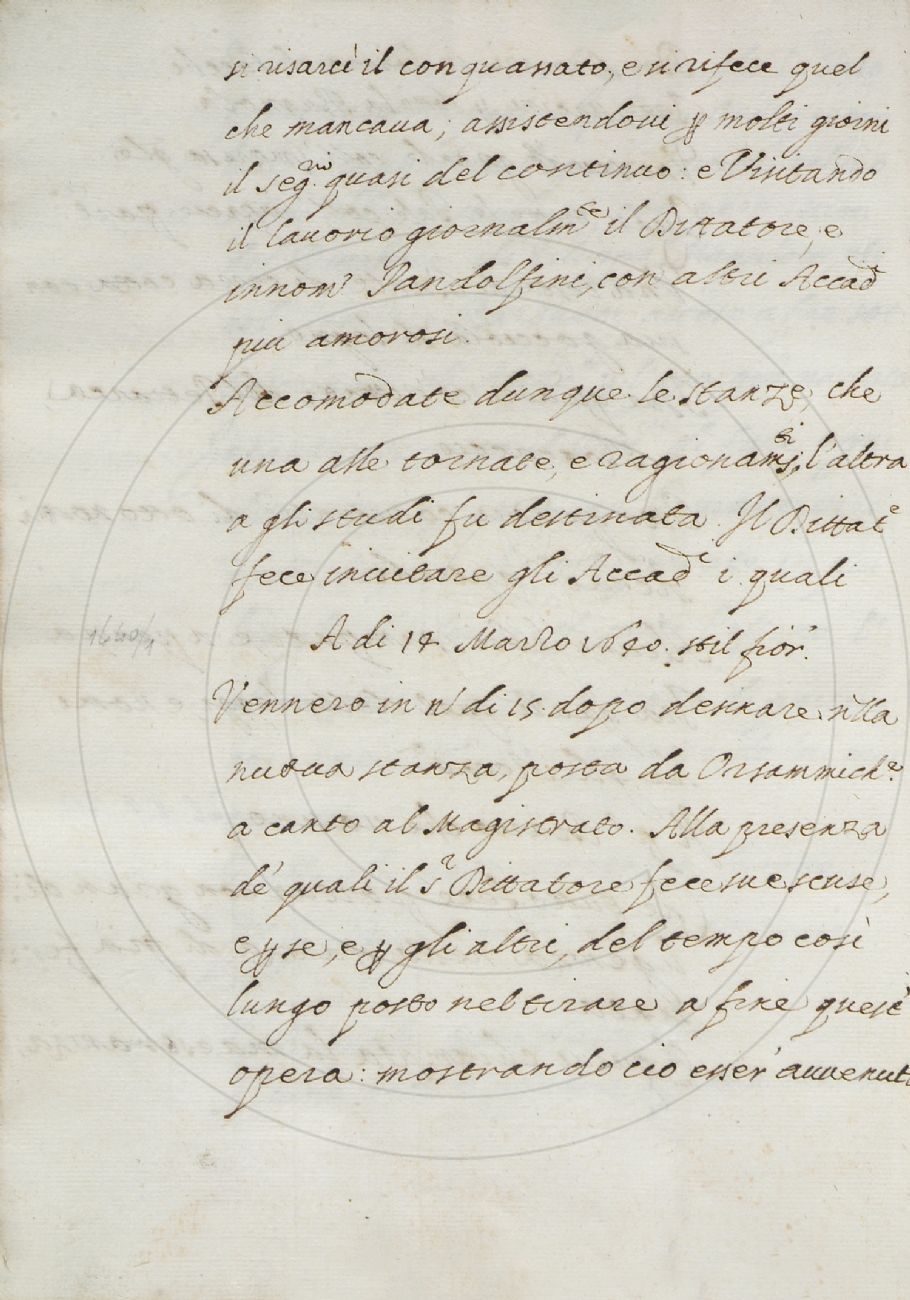 si risarcì il conquassato, e si rifece quel
che mancaua; assistendoui ꝑ molti giorni
il Seg.rio quasi del continuo: e Visitando
il lauorio giornalm.te il Dittatore, e
innom.° Pandolfini, con altri Accad.i
più amorosi.
Accomodate dunque le stanze, che
una alle tornate, e ragionam.ti, l'altra
a gli studi fu destinata. Il Dittat.e
fece inuitare gli Accad.i i quali
A di 14 Marzo 1640. stil fior.°
1640/1
Vennero in n.° di 15. dopo desinare nlla
nuoua stanza, posta da Orsammich.e
a canto al Magistrato. Alla presenza
de' quali il S.r Dittatore fece sue scuse,
e ꝑ se, e ꝑ gli altri, del tempo così
lungo posto nel tirare a fine quest'
opera: mostrando ciò esser' auuenut